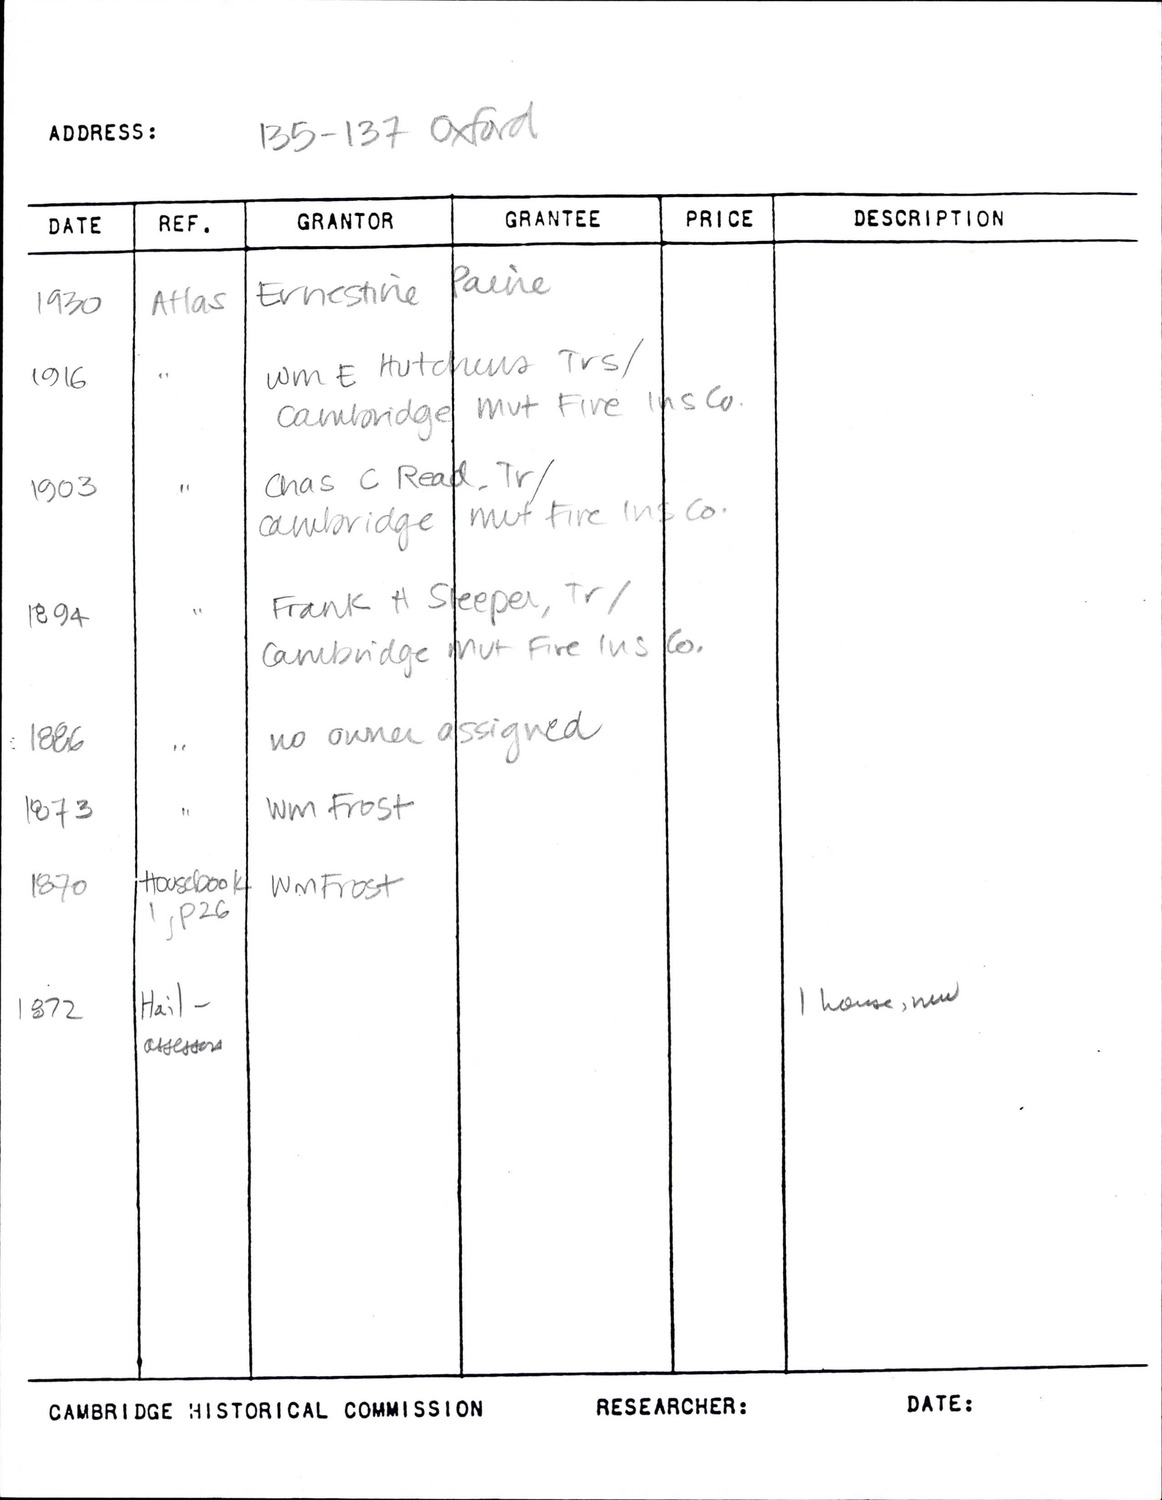 ADDRESS: 135-137 Oxford
DATE REF. GRANTOR GRANTEE PRICE DESCRIPTION
1930 Atlas Ernestine Paine
1916 " Wm E Hutchins Trs/
Cambridge Mut Fire Ins Co.
1903 " Chas C Read, Tr/
Cambridge Mut Fire Ins Co.
1894 " Frank H Sleeper, Tr/
Cambridge Mut Fire Ins Co.
1886 " no owner assigned
1873 " Wm Frost
1870 Housebook Wm Frost
1, p26
1872 Hail - 1 house, new
assessors
CAMBRIDGE HISTORICAL COMMISSION RESEARCHER: DATE: